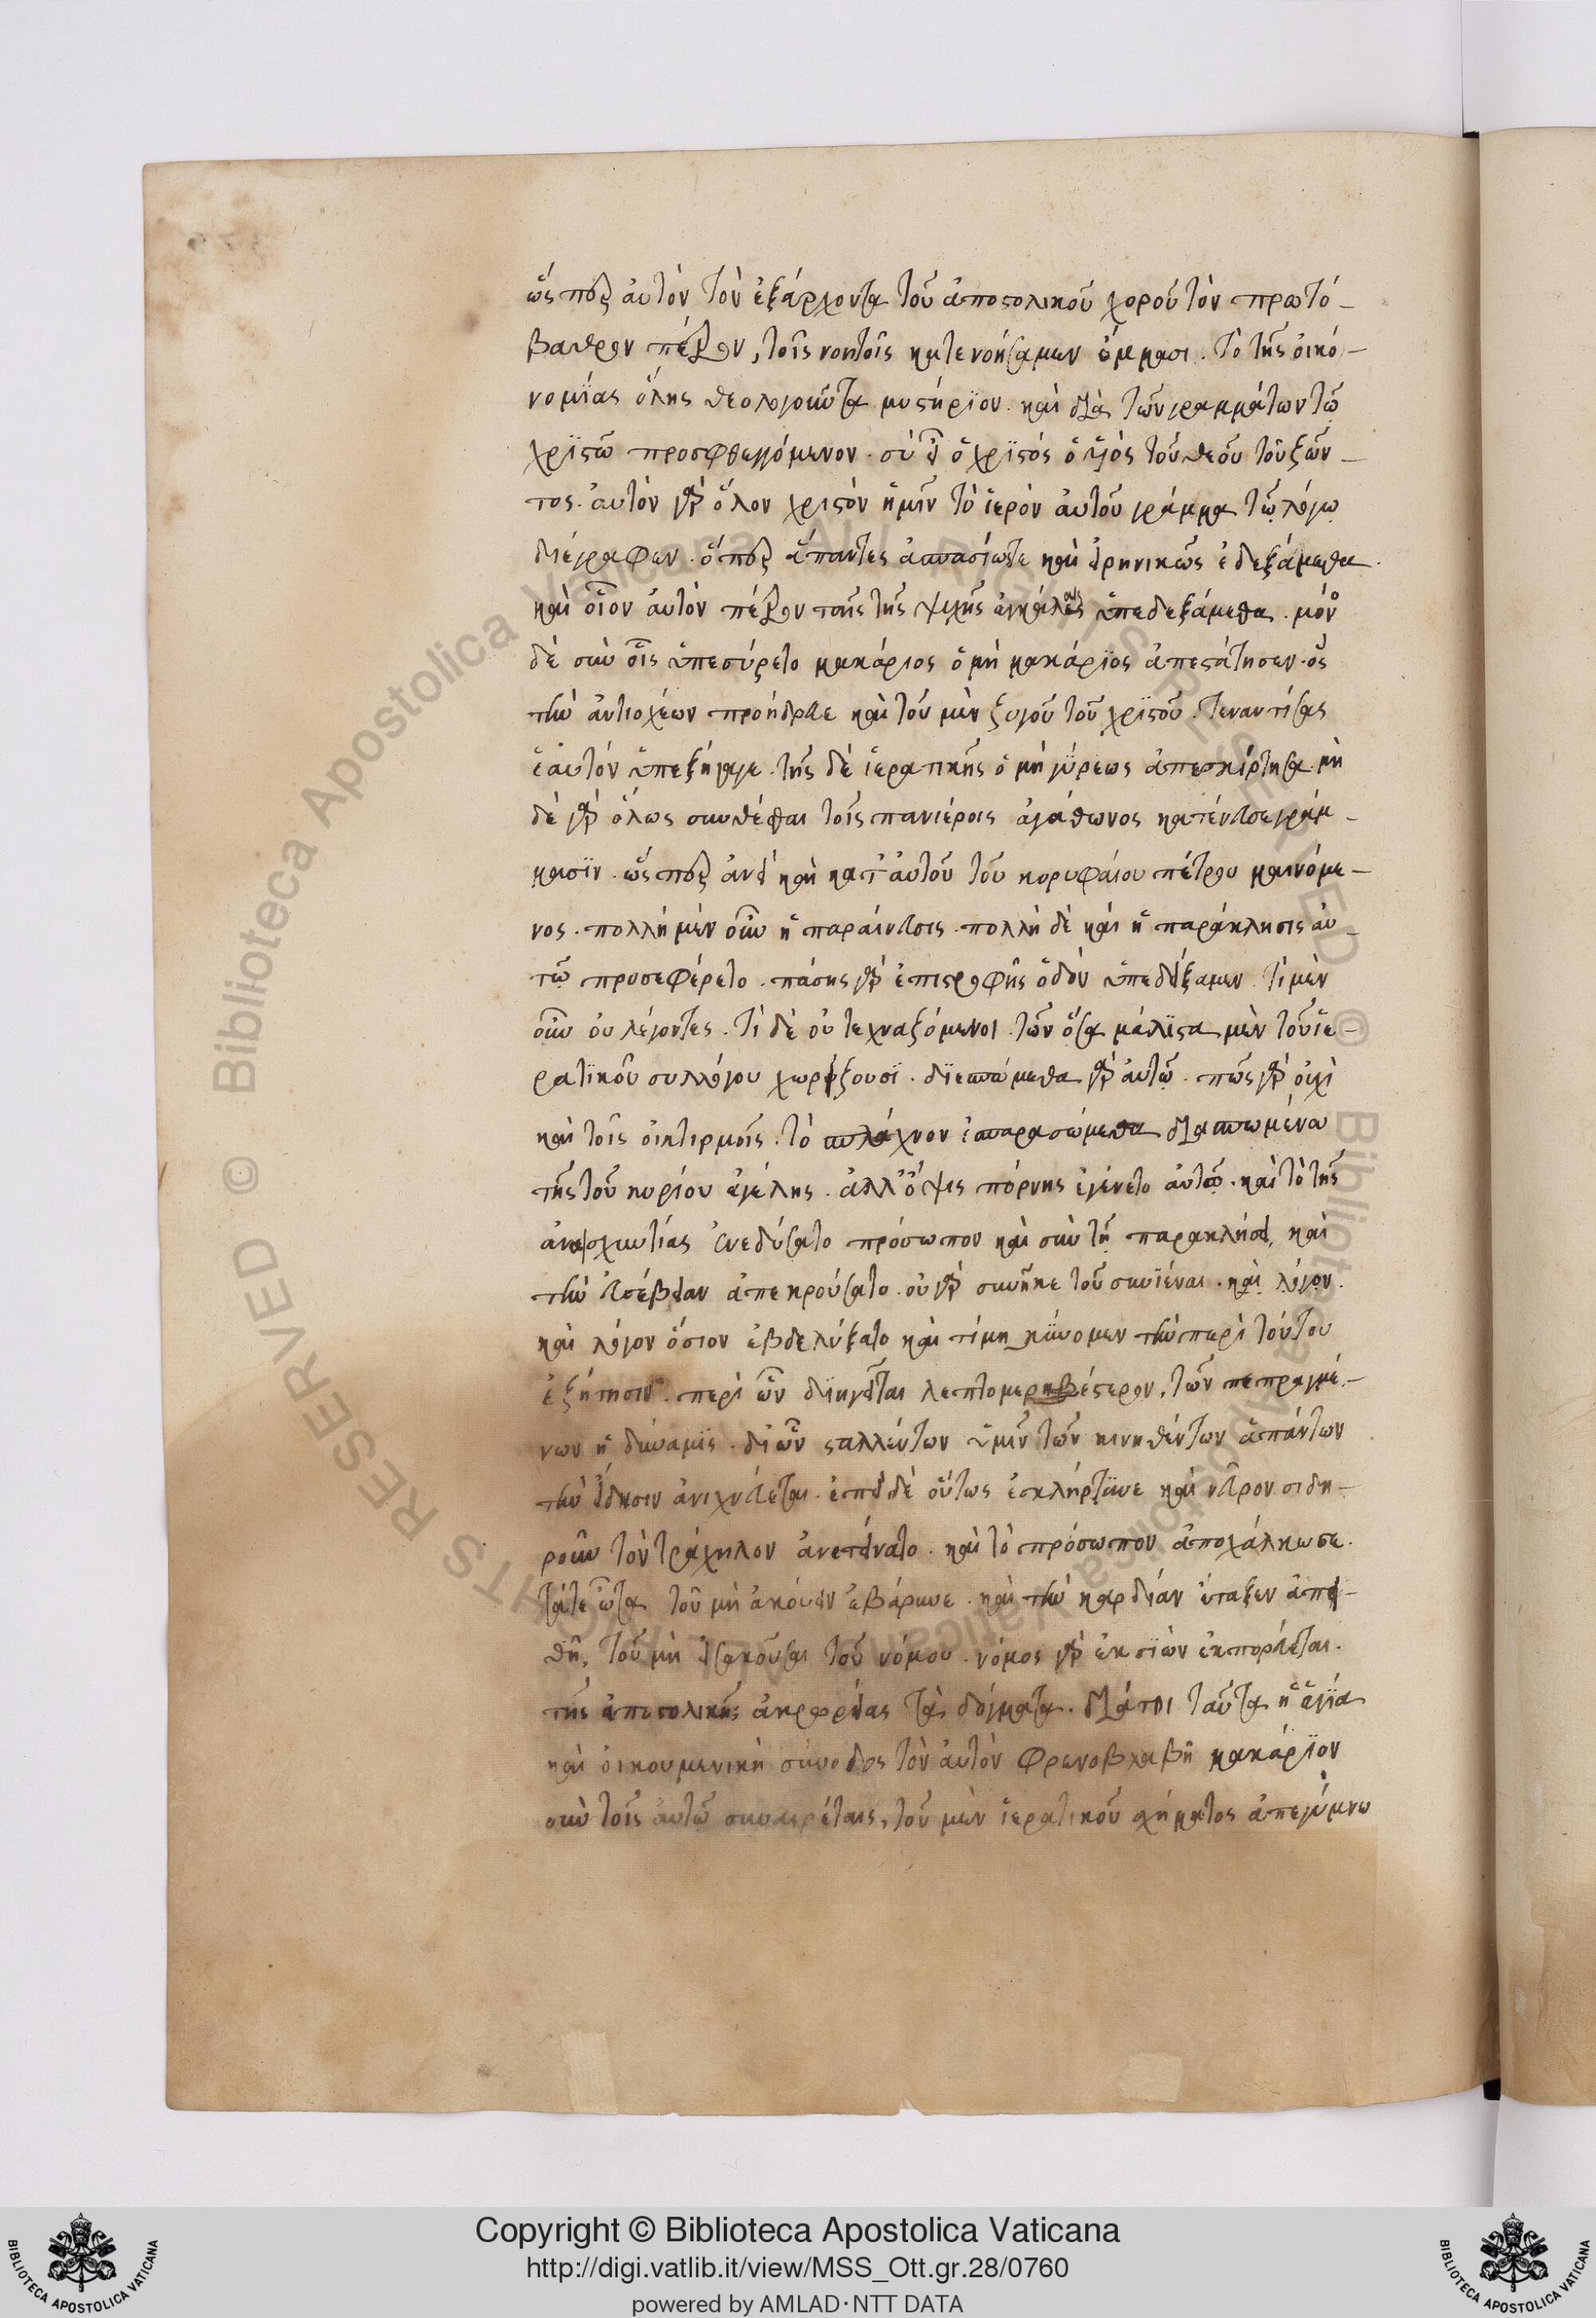 ὥσπερ αὐτὸν τὸν ἐξάρχοντα τοῦ ἀποστολικοῦ χοροῦ τὸν πρωτό-
βαθρον πέτρον, τοῖς νοητοῖς κατενοήσαμεν ὄμμασι. Τὸ τῆς οἰκο-
νομίας ὅλης θεολογοῦντα μυστήριον. καὶ διὰ τῶν γραμμάτων τῷ
χριστῷ προσφθεγγόμενον. σὺ εἶ ὁ χριστὸς ὁ υἱὸς τοῦ θεοῦ τοῦ ζῶν-
τος. αὐτὸν γὰρ ὅλον χριστὸν ἡμῖν τὸ ἱερὸν αὐτοῦ γράμμα τῷ λόγῳ
διέγραφεν. ὅπερ ἅπαντες ἀσπασίως τε καὶ εἰρηνικῶς ἐδεξάμεθα.
καὶ οἷον αὐτὸν πέτρον ταῖς τῆς ψυχῆς ἀγκάλαις ὑπεδεξάμεθα. μόνος
δὲ σὺν οἷς ὑπεσύρετο μακάριος ὁ μὴ μακάριος ἀπεστάτησεν. ὃς
τὴν ἀντιοχέων προήδρευε καὶ τοῦ μὲν ζυγοῦ τοῦ χριστοῦ.
ἑαυτὸν ὑπεξήγαγε. τῆς δὲ ἱερατικῆς ὁ μὴ γύρεως ἀπεσκίρτησα. μη
δὲ γὰρ ὅλως συνθέσθαι τοῖς πανιέροις ἀγάθωνος κατένευσε γράμ-
μασιν. ὥσπερ ἀνεὶ καὶ κατ' αὐτοῦ τοῦ κορυφαίου πέτρου μαινόμε-
νος. πολλὴ μὲν οὖν ἡ παραίνεσις. πολλὴ δὲ καὶ ἡ παράκλησις αὐ-
τῷ προσεφέρετο. πάσης γὰρ ἐπιστροφῆς ὁδὸν ὑπεδείξαμεν. Τί μὲν
οὖν οὐ λέγοντες. Τί δὲ οὐ τεχναζόμενοι. τῶν ὅσα μάλιστα μὲν τοῦ ἱε-
ρατικοῦ συλλόγου χωρίζουσι. διεσπώμεθα γὰρ αὐτῷ. πῶς γὰρ οὐχὶ
καὶ τοῖς οἰκτιρμοῖς. τὸ σπλάχνον ἐσπαρασσώμεθα διασπωμένω
τῆς τοῦ κυρίου ἀγέλης. ἀλλ' ὄψις πόρνης ἐγένετο αὐτῷ. καὶ τὸ τῆς
ἀναισχυντίας ἐνεδύσατο πρόσωπον καὶ σὺν τῇ παρακλήσει, καὶ
τὴν εὐσέβειαν ἀπεκρούσατο. οὐ γὰρ συνῆκε τοῦ συνϊέναι. καὶ λόγον.
καὶ λόγον ὅσιον ἐβδελύξατο καὶ τί μηκύνομεν τὴν περὶ τούτου
ἐξήτησιν. περὶ ὧν διηγεῖται λεπτομερέστερον, τῶν πεπραγμέ-
νων ἡ δύναμις. δι' ὧν σταλλέντων ὑμῖν τῶν κινηθέντων ἁπάντων
τὴν εἴδησιν ἀνιχνεύεται. ἐπεὶ δὲ οὕτως ἐσκλήρυνε καὶ νεῦρον σιδη-
ροῦν τὸν τράχηλον ἀνετείνατο. καὶ τὸ πρόσωπον ἀποχάλκωσε.
τά τε ὦτα τοῦ μὴ ἀκούειν ἐβάρυνε. καὶ τὴν καρδίαν ἔταξεν ἀπει-
θῆ, τοῦ μὴ εἰσακοῦσαι τοῦ νόμου. νόμος γὰρ ἐκ σϊὼν ἐκπορεύεται.
τῆς ἀποστολικῆς ἀκρωρείας τὰ δόγματα. διάτοι ταῦτα ἡ ἁγία
καὶ οἰκουμενικὴ σύνοδος τὸν αὐτὸν φρενοβλαβῆ μακάριον
σὺν τοῖς αὐτῷ συναιρέταις, τοῦ μὲν ἱερατικοῦ σχήματος ἀπεγύμνω
Copyright © Biblioteca Apostolica Vaticana
http://digi.vatlib.it/view/MSS_Ott.gr.28/0760
powered by AMLAD·NTT DATA
BIBLIOTECA APOSTOLICA VATICANA
BIBLIOTECA APOSTOLICA VATICANA